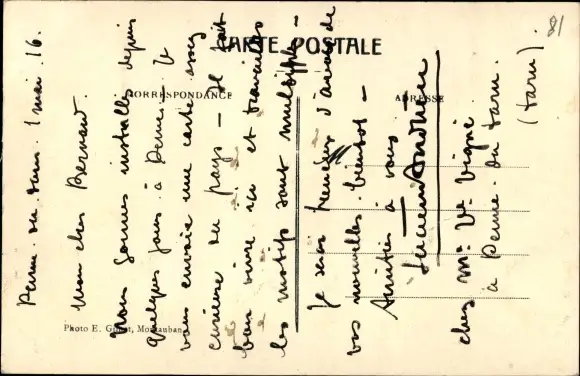 CARTE POSTALE
CORRESPONDANCE
ADRESSE
Penne. du tarn. 1 mai. 16.
Mon cher Bernard.
Nous sommes installés depuis
quelques jours à Penne. — Je
vous envoie une carte assez
curieuse du pays — Il fait
bon vivre ici et travailler
les motifs sont multiples —
Je serai heureux d'avoir de
vos nouvelles bientôt —
Amitiés à vous
Lucien
chez Me Ve Vigné
à Penne. du tarn.
(tarn).
81
Photo E. Montauban